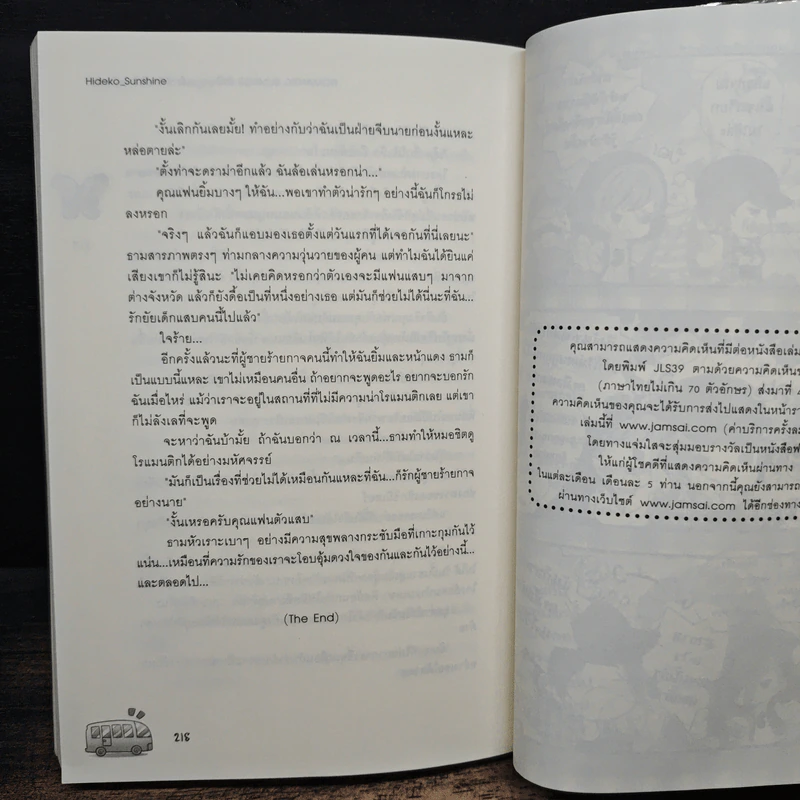 Hideko_Sunshine
"งั้นเลิกกันเลยมั้ย! ทำอย่างกับว่าฉันเป็นฝ่ายจีบนายก่อนงั้นแหละ
หล่อตายล่ะ"
"ตั้งท่าจะดราม่าอีกแล้ว ฉันล้อเล่นหรอกน่า..."
คุณแฟนยิ้มบางๆ ให้ฉัน...พอเขาทำตัวน่ารักๆ อย่างนี้ฉันก็โกรธไม่
ลงหรอก
"จริงๆ แล้วฉันก็แอบมองเธอตั้งแต่วันแรกที่ได้เจอกันที่นี่เลยนะ"
ธามสารภาพตรงๆ ท่ามกลางความวุ่นวายของผู้คน แต่ทำไมฉันได้ยินแค่
เสียงเขาก็ไม่รู้สินะ "ไม่เคยคิดหรอกว่าตัวเองจะมีแฟนแสบๆ มาจาก
ต่างจังหวัด แล้วก็ยังดื้อเป็นที่หนึ่งอย่างเธอ แต่มันก็ช่วยไม่ได้นี่นะที่ฉัน...
รักยัยเด็กแสบคนนี้ไปแล้ว"
ใจร้าย...
อีกครั้งแล้วนะที่ผู้ชายร้ายกาจคนนี้ทำให้ฉันยิ้มและหน้าแดง ธามก็
เป็นแบบนี้แหละ เขาไม่เหมือนคนอื่น ถ้าอยากจะพูดอะไร อยากจะบอกรัก
ฉันเมื่อไหร่ แม้ว่าเราจะอยู่ในสถานที่ที่ไม่มีความน่าโรแมนติกเลย แต่เขา
ก็ไม่ลังเลที่จะพูด
จะหาว่าฉันบ้ามั้ย ถ้าฉันบอกว่า ณ เวลานี้...ธามทำให้หมอชิตดู
โรแมนติกได้อย่างมหัศจรรย์
"มันก็เป็นเรื่องที่ช่วยไม่ได้เหมือนกันแหละที่ฉัน...ก็รักผู้ชายร้ายกาจ
อย่างนาย"
"งั้นเหรอครับคุณแฟนตัวแสบ"
ธามหัวเราะเบาๆ อย่างมีความสุขพลางกระชับมือที่เกาะกุมกันไว้
แน่น...เหมือนที่ความรักของเราจะโอบอุ้มดวงใจของกันและกันไว้อย่างนี้...
และตลอดไป...
(The End)
218
คุณสามารถแสดงความคิดเห็นที่มีต่อหนังสือเล่ม
โดยพิมพ์ JLS39 ตามด้วยความคิดเห็น
(ภาษาไทยไม่เกิน 70 ตัวอักษร) ส่งมาที่ 4
ความคิดเห็นของคุณจะได้รับการส่งไปแสดงในหน้า
เล่มนี้ที่ www.jamsai.com (ค่าบริการครั้งละ
โดยทางแจ่มใสจะสุ่มมอบรางวัลเป็นหนังสือ
ให้แก่ผู้โชคดีที่แสดงความคิดเห็นผ่านทาง
ในแต่ละเดือน เดือนละ 5 ท่าน นอกจากนี้คุณยังสามารถ
ผ่านทางเว็บไซต์ www.jamsai.com ได้อีกช่องทาง